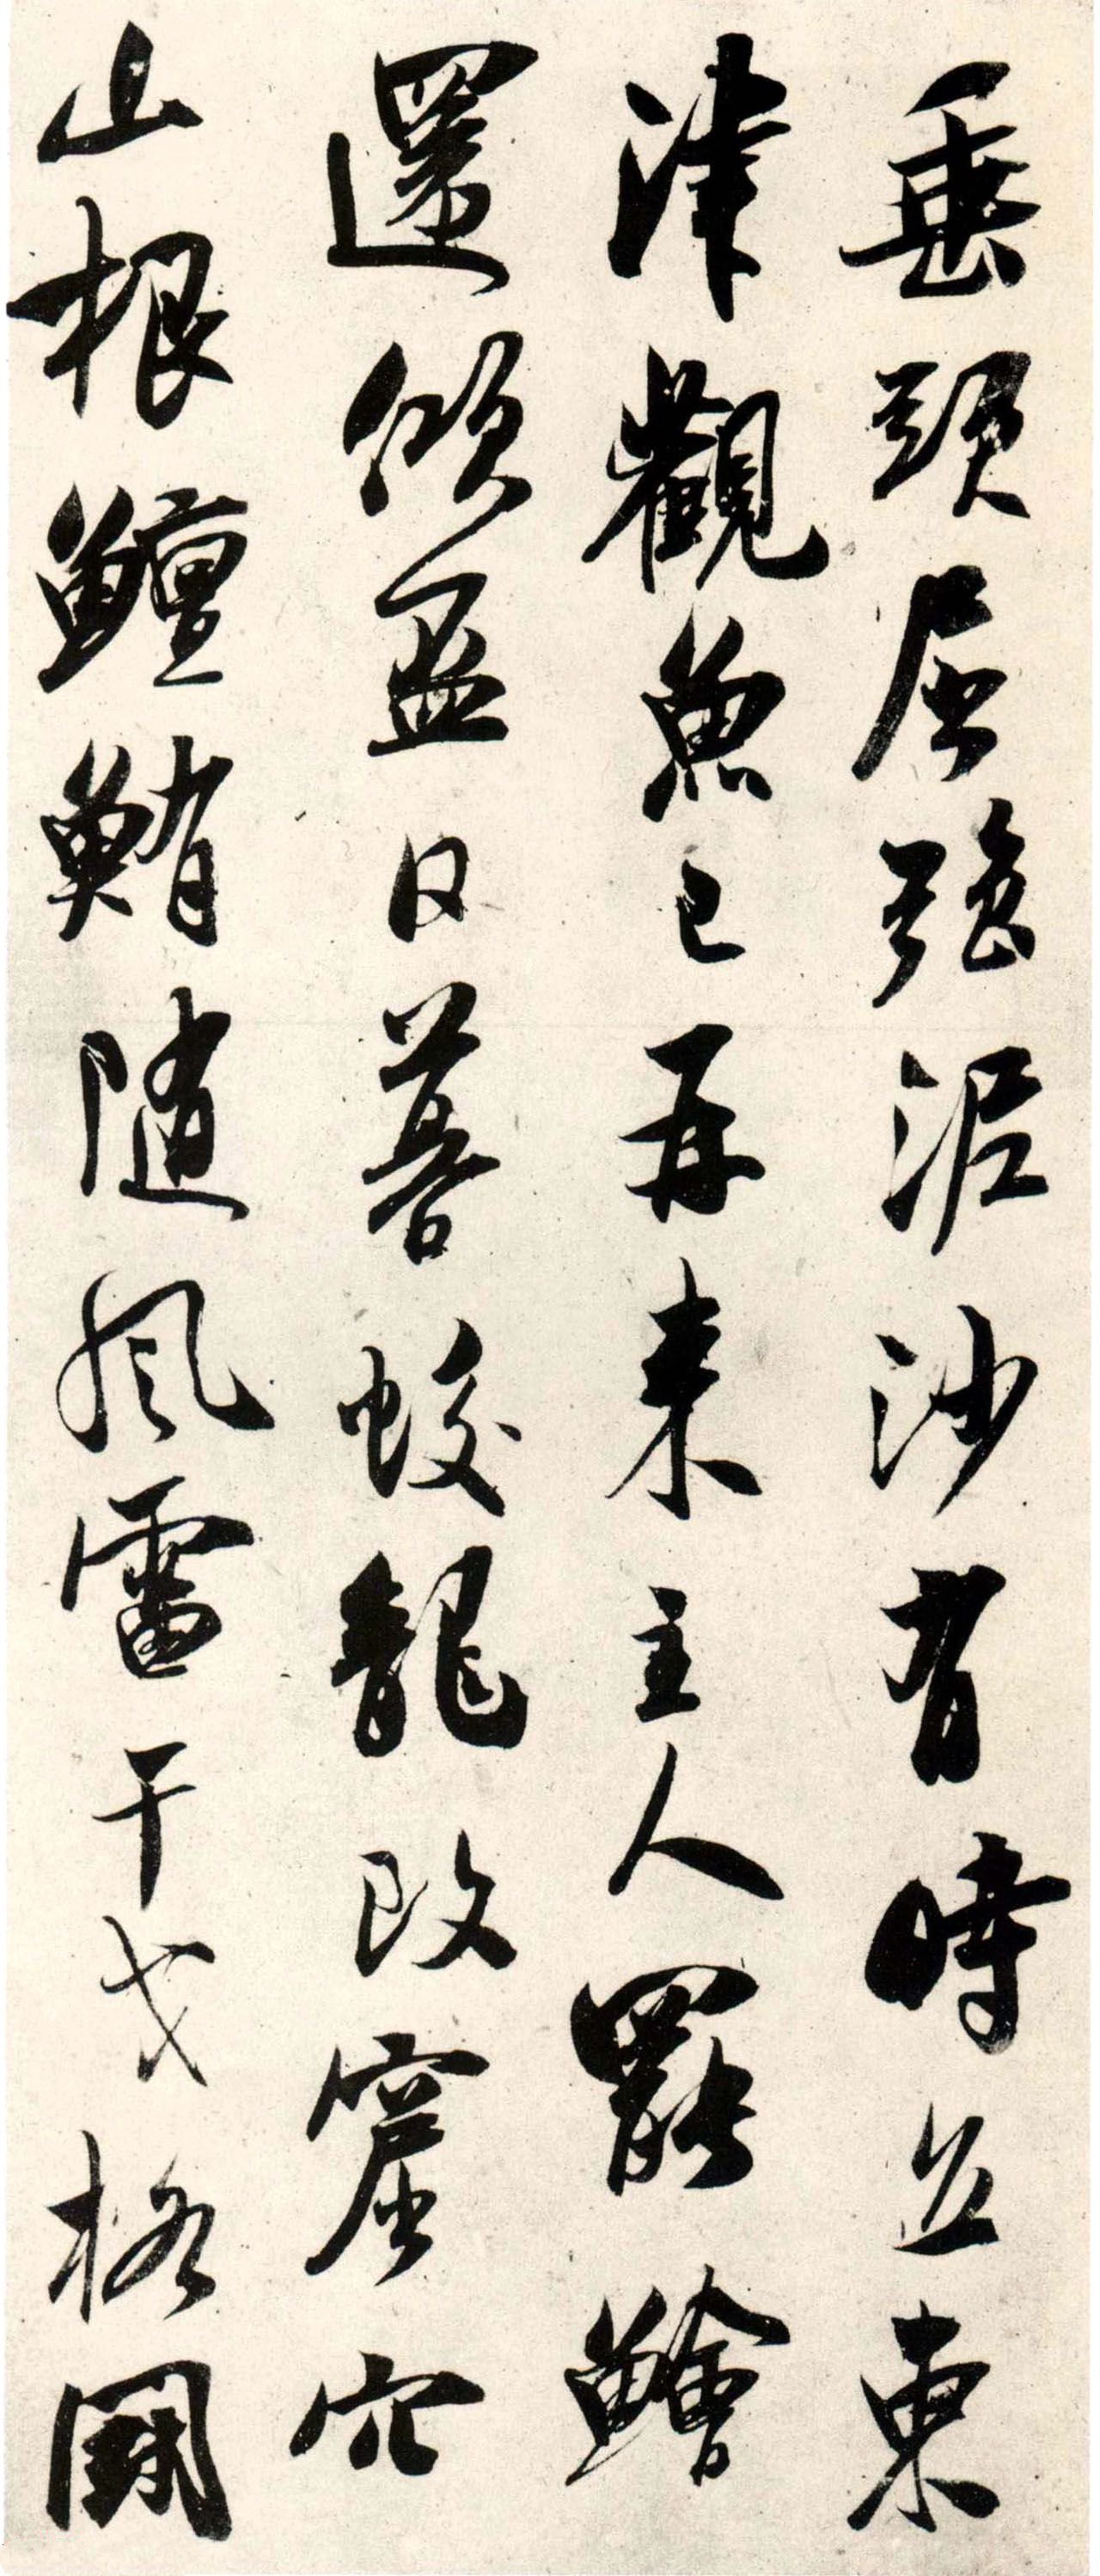 垂頭屈強泥沙有時立東
津觀魚已再来主人罷鱠
還傾盃日暮蛟龍改窟穴
山根鱣鮪隨風雷干戈格鬭